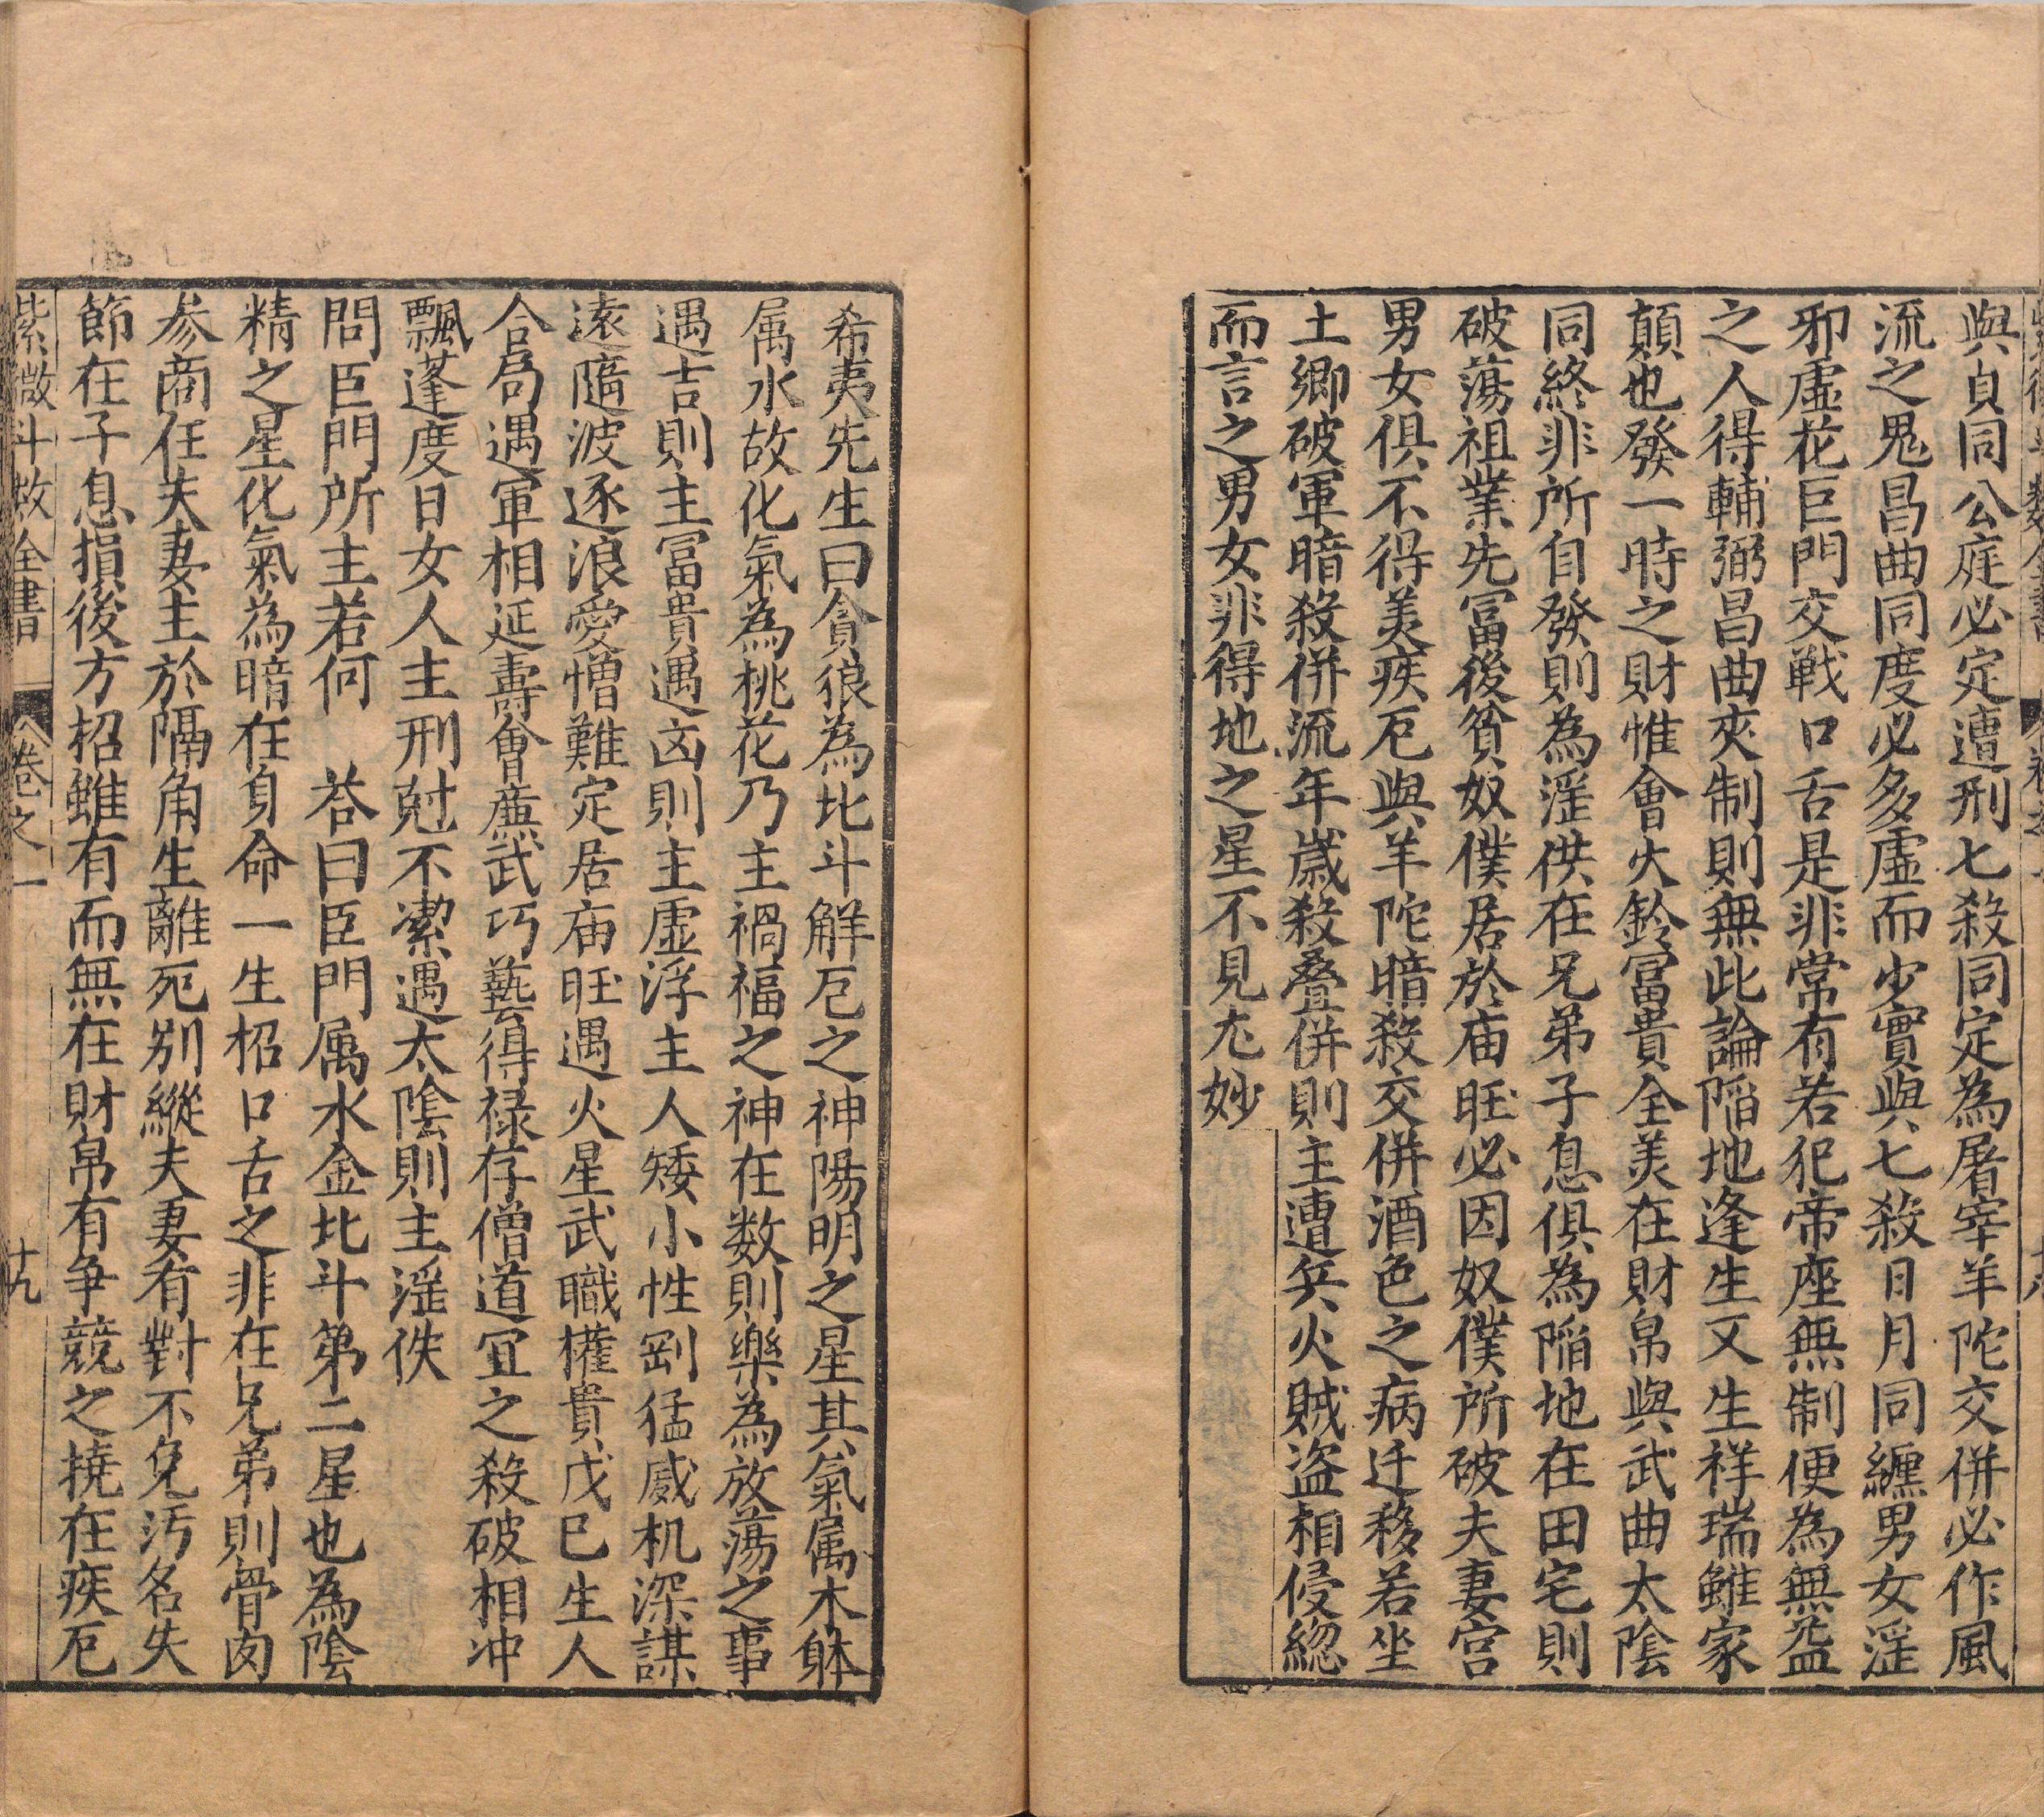 與貞同公庭必定遭刑七殺同定為屠宰羊陀交併必作風
流之鬼昌曲同度必多虛而少實與七殺日月同纏男女淫
邪虛花巨門交戰口舌是非常有若犯帝座無制便為無益
之人得輔弼昌曲夾制則無此論陷地逢生又生祥瑞雖家
顛也發一時之財惟會火鈴富貴全美在財帛與武曲太陰
同終非所自發則為淫佚在兄弟子息俱為陷地在田宅則
破蕩祖業先富後貧奴僕居於庙旺必因奴僕所破夫妻宮
男女俱不得美疾厄與羊陀暗殺交併酒色之病迁移若坐
土鄉破軍暗殺併流年歲殺疊併則主遭兵火賊盜相侵総
而言之男女非得地之星不見尤妙
希夷先生曰貪狼為北斗解厄之神陽明之星其氣属木躰
属水故化氣為桃花乃主禍福之神在数則樂為放蕩之事
遇吉則主富貴遇凶則主虛浮主人矮小性剛猛威机深謀
遠隨波逐浪愛憎難定居庙旺遇火星武職權貴戊巳生人
合局遇軍相延壽會廉武巧藝得禄存僧道宜之殺破相冲
飄蓬度日女人主刑尅不潔遇太陰則主淫佚
問巨門所主若何 荅曰巨門属水金北斗第二星也為陰
精之星化氣為暗在身命一生招口舌之非在兄弟則骨肉
参商在夫妻主於隔角生離死别縱夫妻有對不免汚名失
節在子息損後方招雖有而無在財帛有争競之撓在疾厄
紫微斗数全書 卷之一 十九